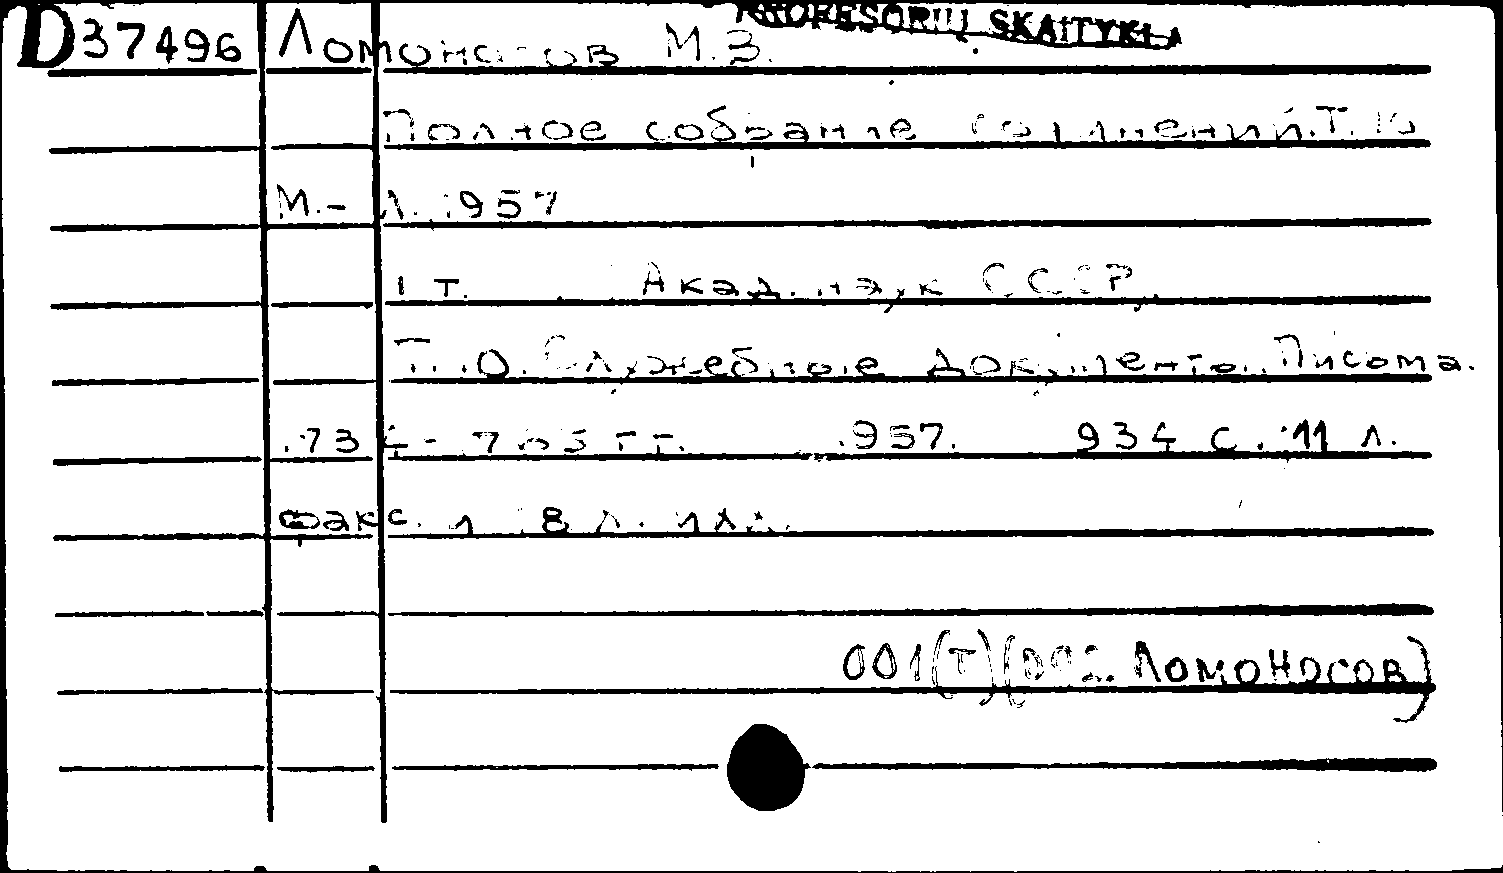 PROFESORIŲ SKAITYKLA
D37496 Ломоносов М.В.
Полное собрание сочинений. Т. 10
М.-Л. 1957
т. Акад. наук СССР,
Т. 10. Служебные документы. Письма.
1734-1765 гг. 1957. 934 с. 11 л.
факс. и 8 л. илл.
001(Т)(092 Ломоносов)